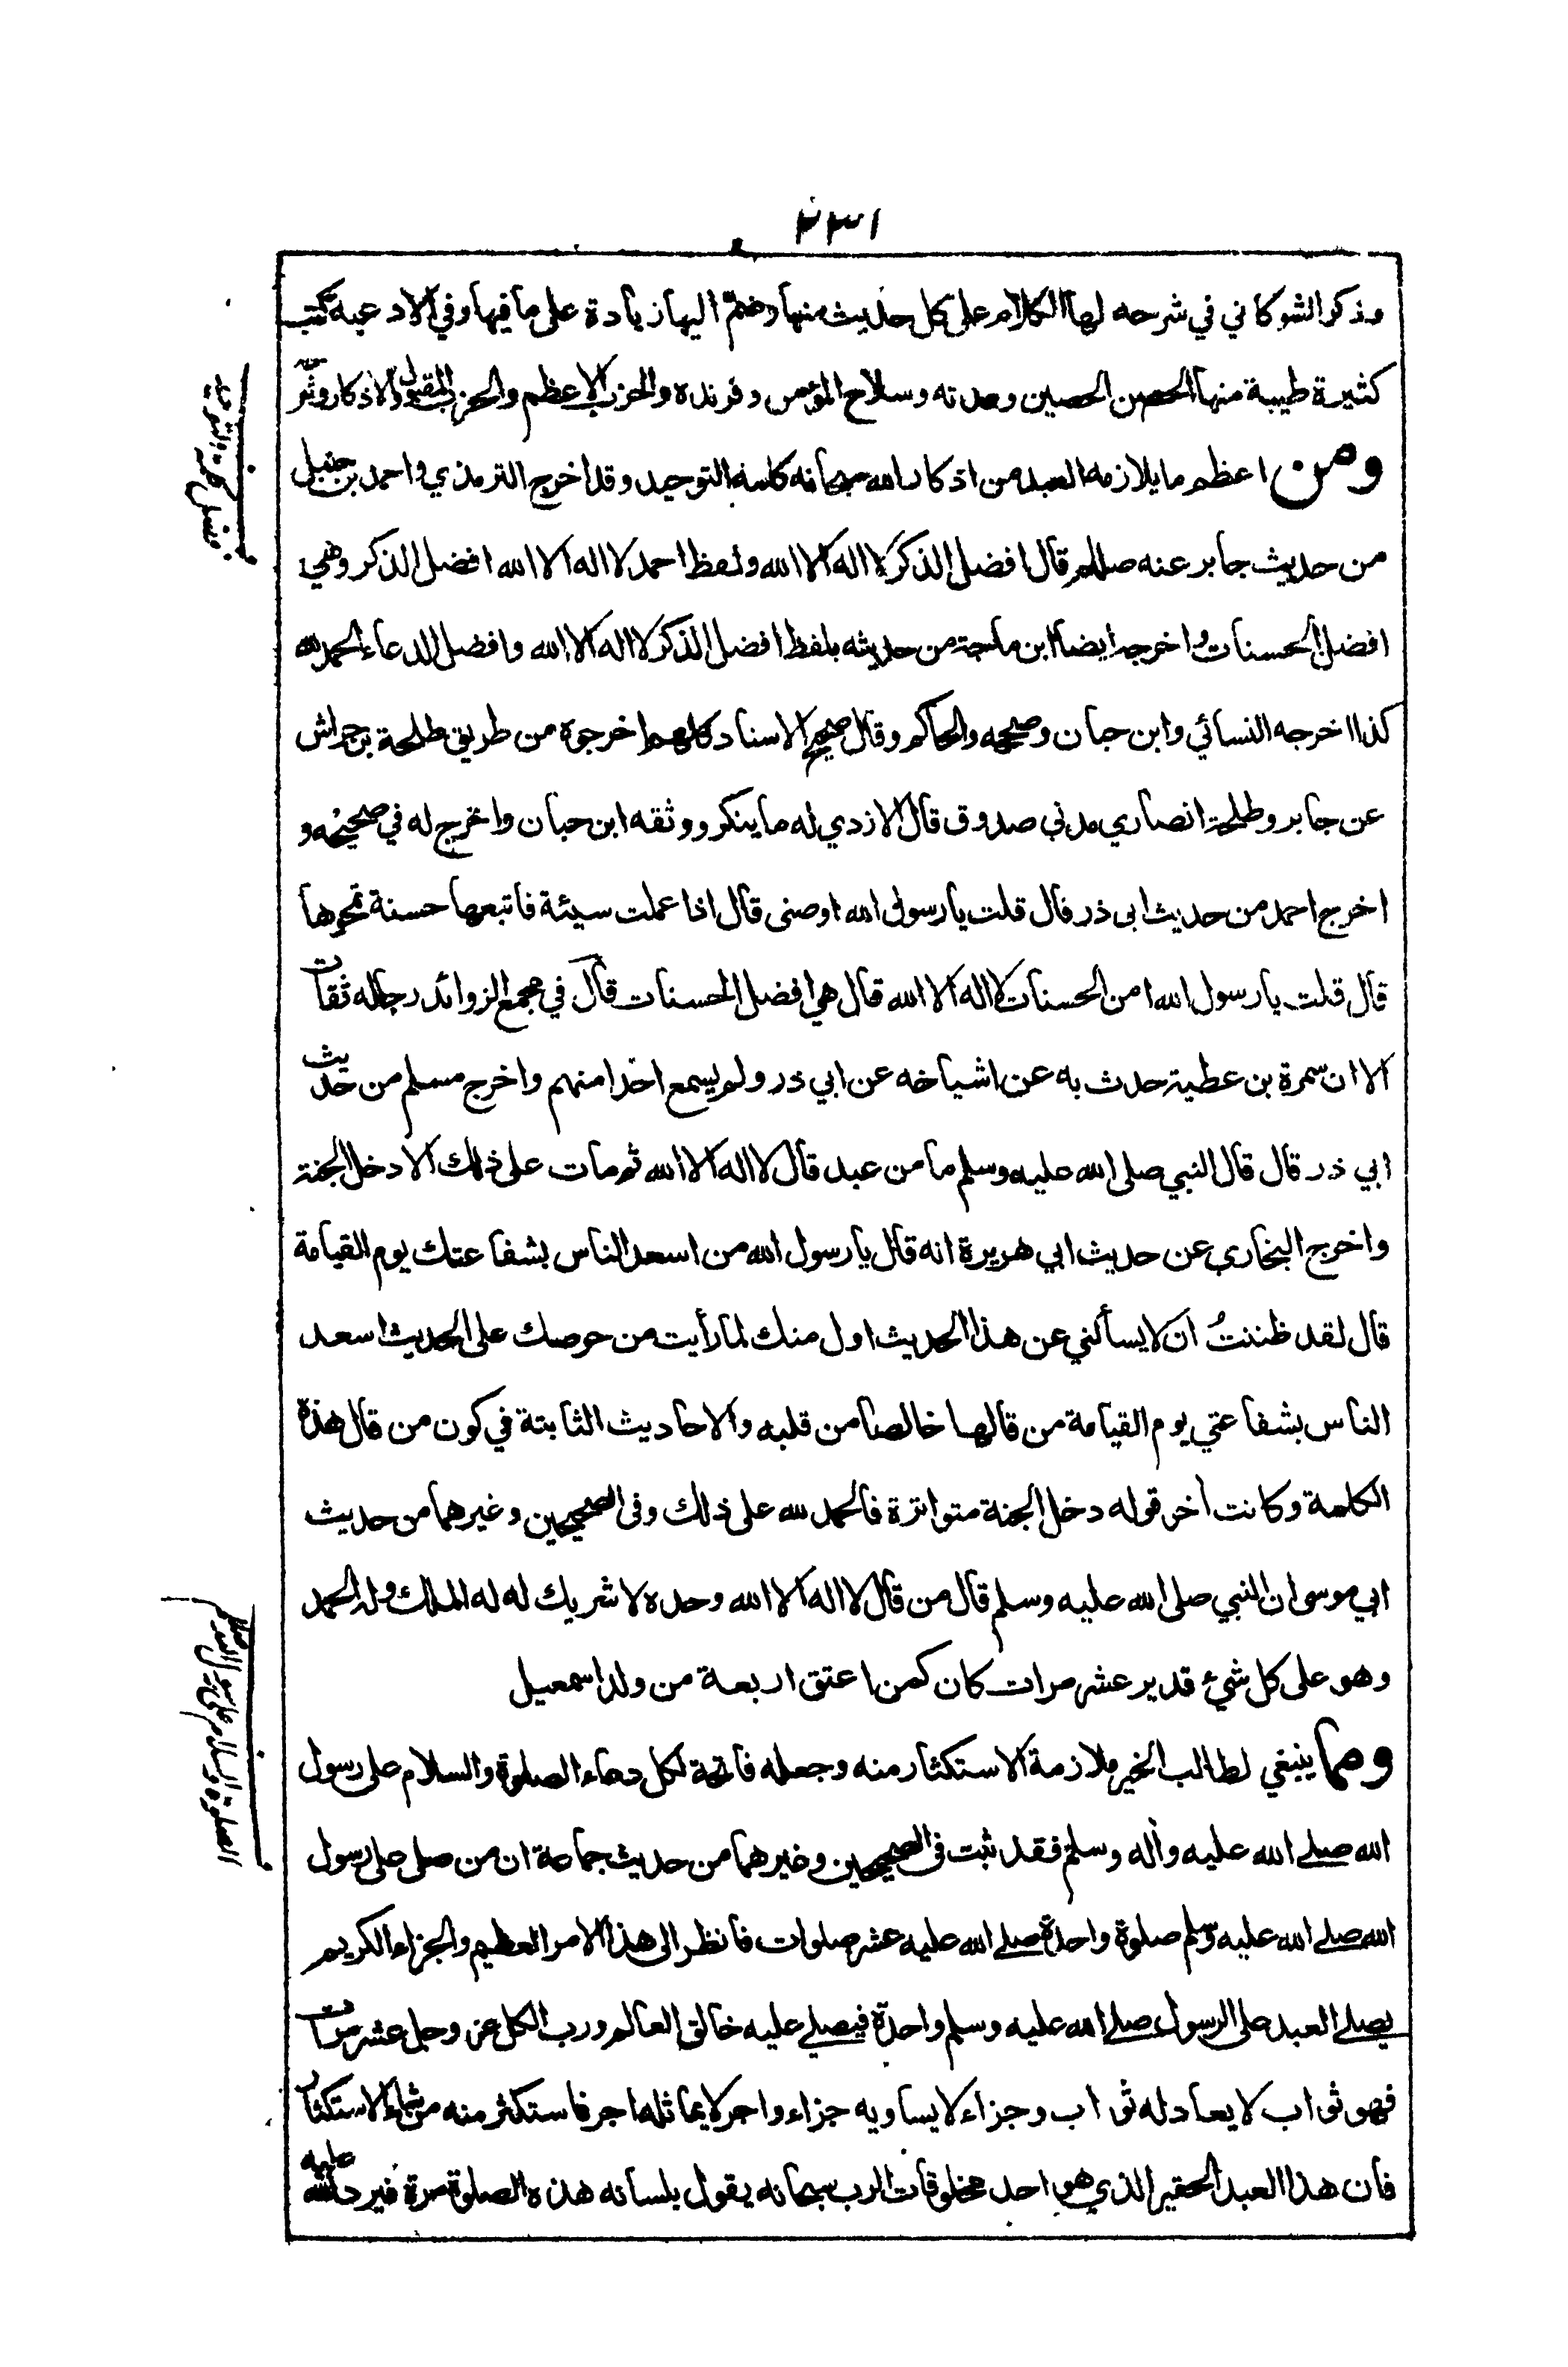 ٢٣١
وذكر الشوكاني في شرحه لها الكلام على كل حديث منها وضم اليها زيادة على ما فيها وفي الادعية كتب
كثيرة طيبة منها الحصن الحصين وعدته وسلاح المؤمن وفرنده والحزب الاعظم والحزب المقبول والاذكار وغيره
ومن اعظم ما يلازمه العبد من اذكار الله سبحانه كلمة التوحيد وقد اخرج الترمذي واحمد بن حنبل
من حديث جابر عنه صللم قال افضل الذكر لا اله الا الله ولفظ احمد لا اله الا الله افضل الذكر وهي
افضل الحسنات واخرجه ايضا ابن ماجة من حديثه بلفظ افضل الذكر لا اله الا الله وافضل الدعاء الحمد لله
كذا اخرجه النسائي وابن حبان وصححه والحاكم وقال صحيح الاسناد كلهم اخرجوه من طريق طلحة بن خراش
عن جابر وطلحة انصاري مدني صدوق قال الازدي له ما ينكر ووثقه ابن حبان واخرج له في صحيحه و
اخرج احمد من حديث ابي ذر قال قلت يا رسول الله اوصني قال اذا عملت سيئة فاتبعها حسنة تمحوها
قال قلت يا رسول الله امن الحسنات لا اله الا الله قال هي افضل الحسنات قال في مجمع الزوائد رجاله ثقات
الا ان سمرة بن عطية حدث به عن اشياخه عن ابي ذر ولم يسمع احدا منهم واخرج مسلم من حديث
ابي ذر قال قال النبي صلى الله عليه وسلم ما من عبد قال لا اله الا الله ثم مات على ذلك الا دخل الجنة
واخرج البخاري عن حديث ابي هريرة انه قال يا رسول الله من اسعد الناس بشفاعتك يوم القيامة
قال لقد ظننتُ ان لا يسألني عن هذا الحديث اول منك لما رأيت من حرصك على الحديث اسعد
الناس بشفاعتي يوم القيامة من قالها خالصا من قلبه والاحاديث الثابتة في كون من قال هذه
الكلمة وكانت أخر قوله دخل الجنة متواترة فالحمد لله على ذلك وفي الصحيحين وغيرهما من حديث
ابي موسى ان النبي صلى الله عليه وسلم قال من قال لا اله الا الله وحده لا شريك له له الملك وله الحمد
وهو على كل شيء قدير عشر مرات كان كمن اعتق اربعة من ولد اسمعيل
ومما ينبغي لطالب الخير ملازمة الاستكثار منه وجعله فاتحة لكل دعاء الصلوة والسلام على رسول
الله صلى الله عليه وأله وسلم فقد ثبت في الصحيحين وغيرهما من حديث جماعة ان من صلى على رسول
الله صلى الله عليه وسلم صلوة واحدة صلى الله عليه عشر صلوات فانظر الى هذا الامر العظيم والجزاء الكريم
يصلي العبد على الرسول صلى الله عليه وسلم واحدة فيصلي عليه خالق العالم ورب الكل عز وجل عشر مرات
فهو ثواب لا يعادله ثواب وجزاء لا يساويه جزاء واجر لا يماثله اجر فاستكثر منه من شاء الاستكثار
فان هذا العبد الحقير الذي هو احد مخلوقات الرب سبحانه يقول بلسانه هذه الصلوة مرة فيرد الله عليه
فضل كلمة التوحيد
الصلوة والسلام على رسول الله صللم